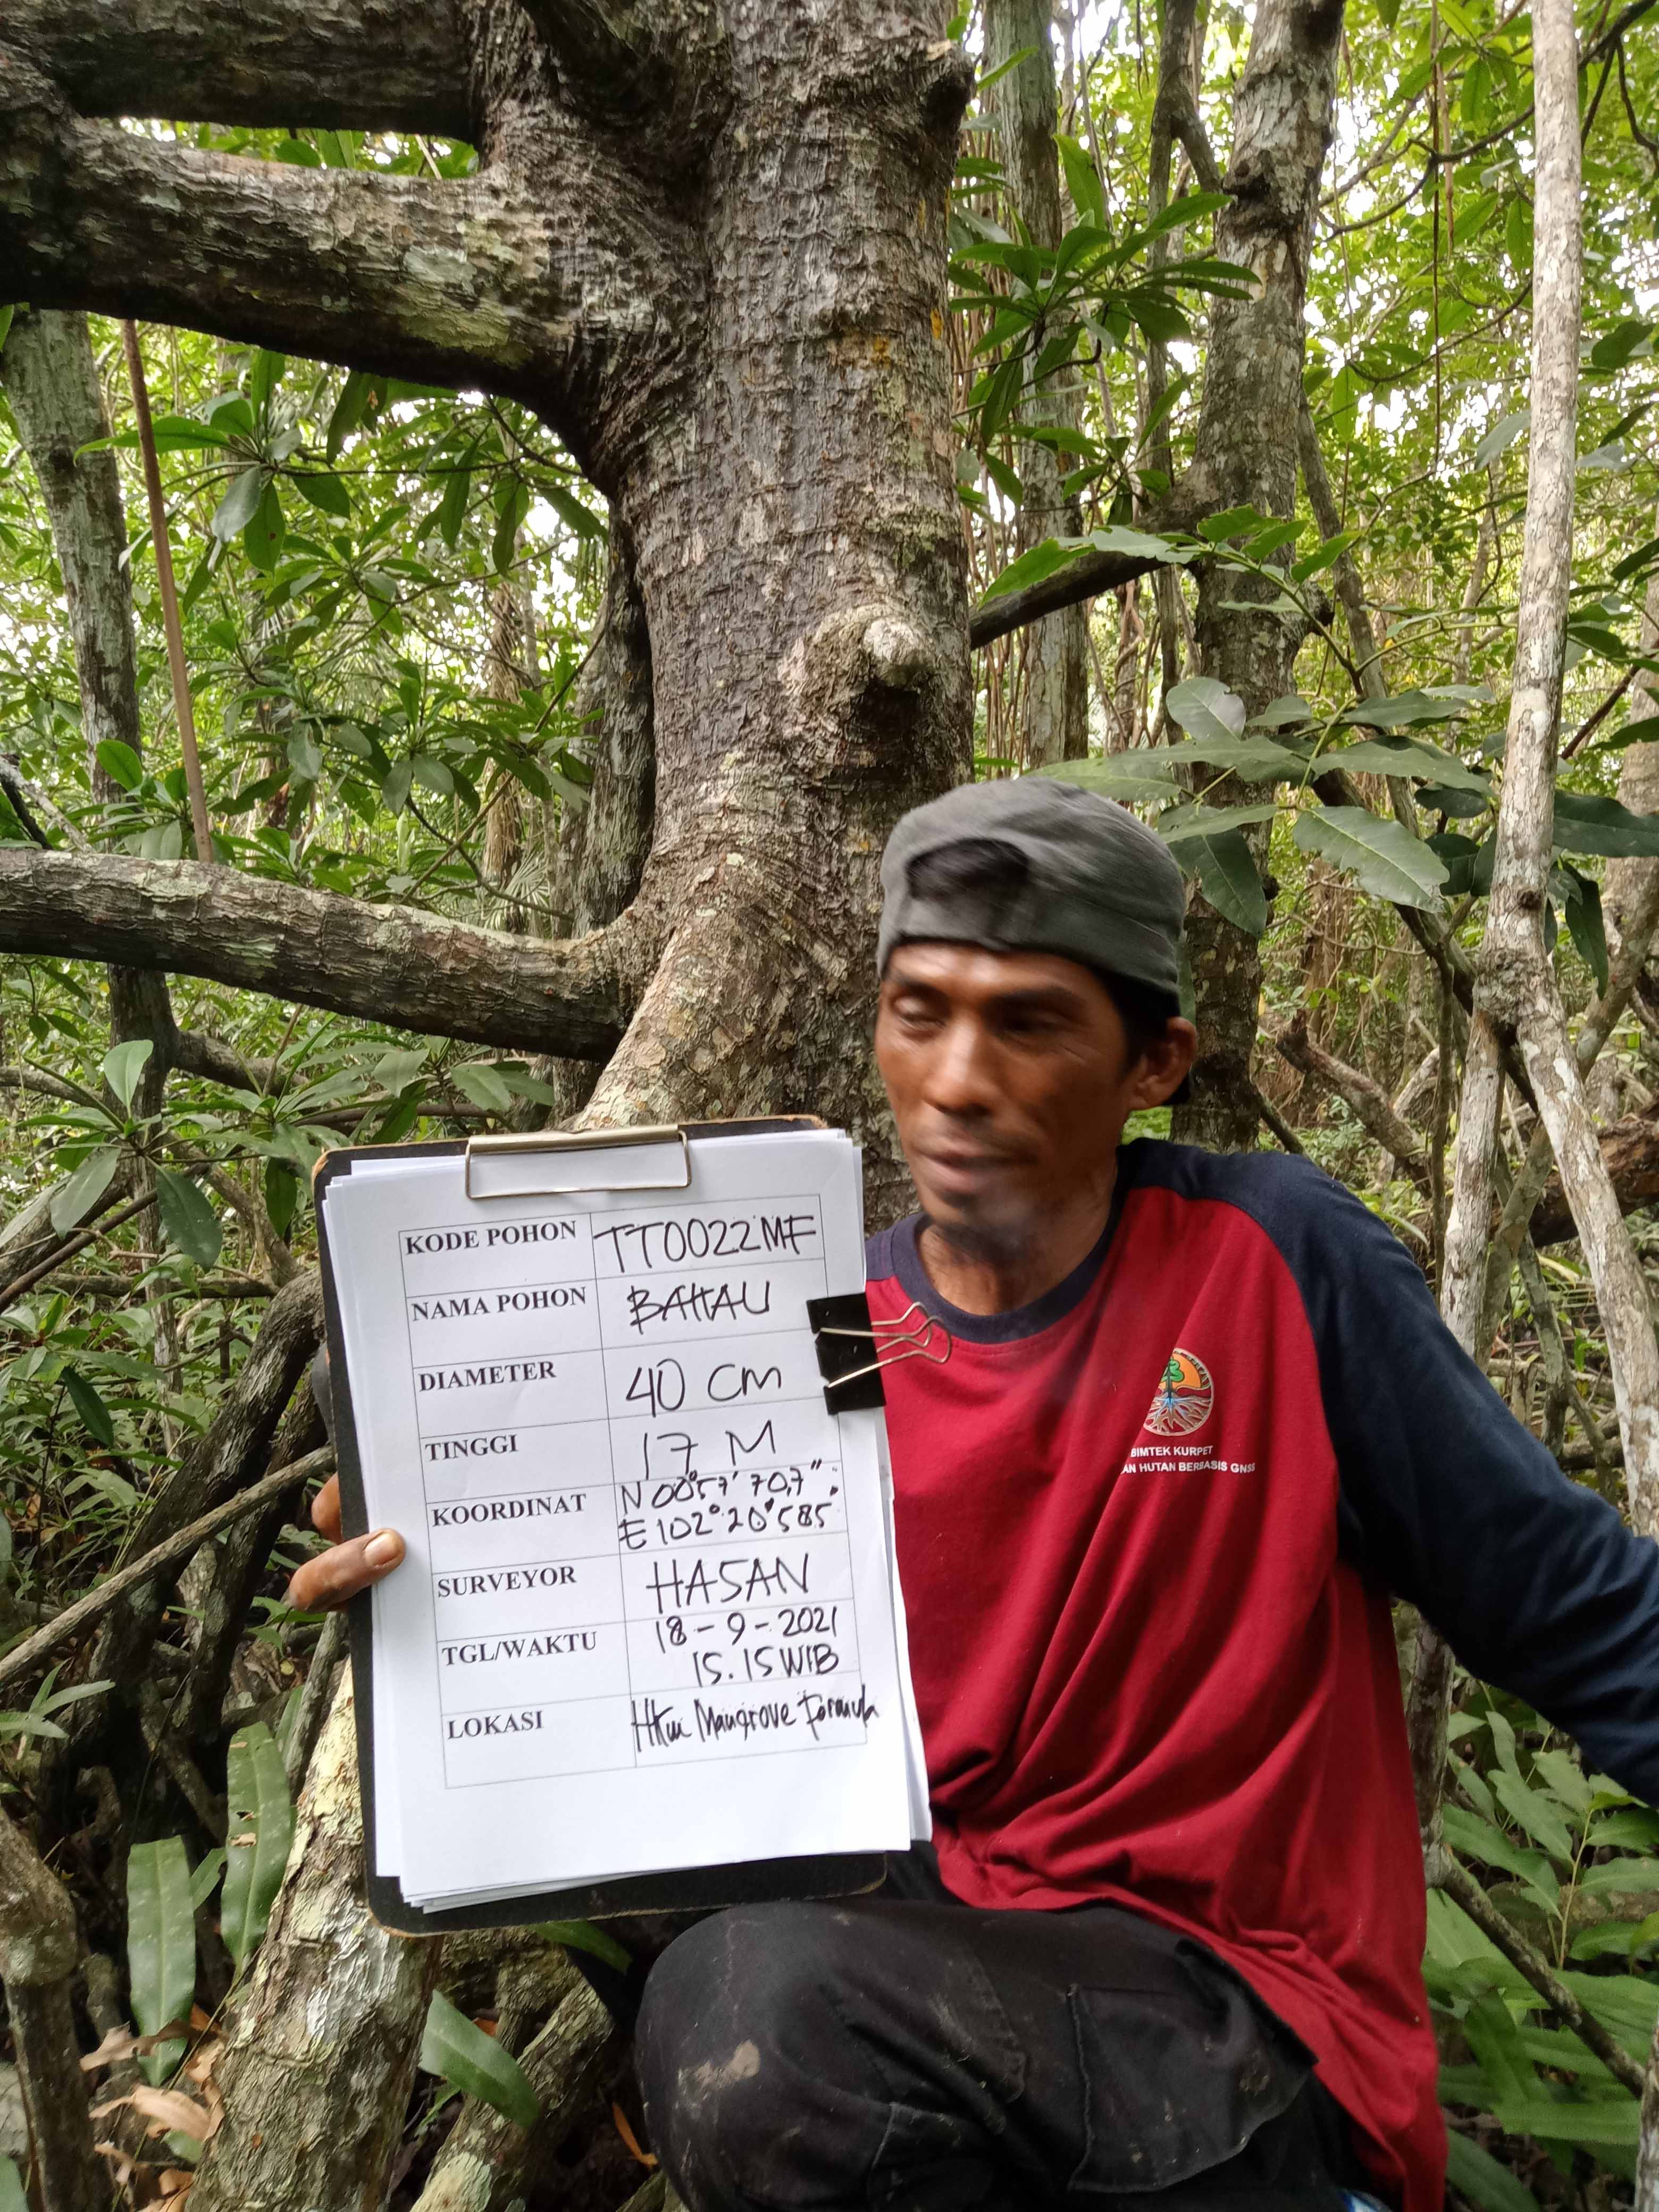 KODE POHON TT0022MF
NAMA POHON BAKAU
DIAMETER 40 CM
TINGGI 17 M
KOORDINAT N 00°57' 70,7";
E 102° 20' 585"
SURVEYOR HASAN
TGL/WAKTU 18-9-2021
15.15 WIB
LOKASI HKm Mangrove
BIMTEK KURPET
AN HUTAN BERBASIS GNSS